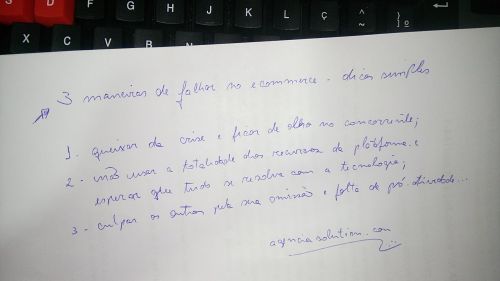 S D F H J K L Ç ^ ~ } ] º
X C V B
3 maneiras de falhar no ecommerce - dicas simples
1 - queixar da crise e ficar de olho no concorrente;
2 - não usar a totalidade dos recursos da plataforma e
esperar que tudo se resolva com a tecnologia;
3 - culpar os outros pela sua omissão e falta de pró-atividade...
agenciasolution.com